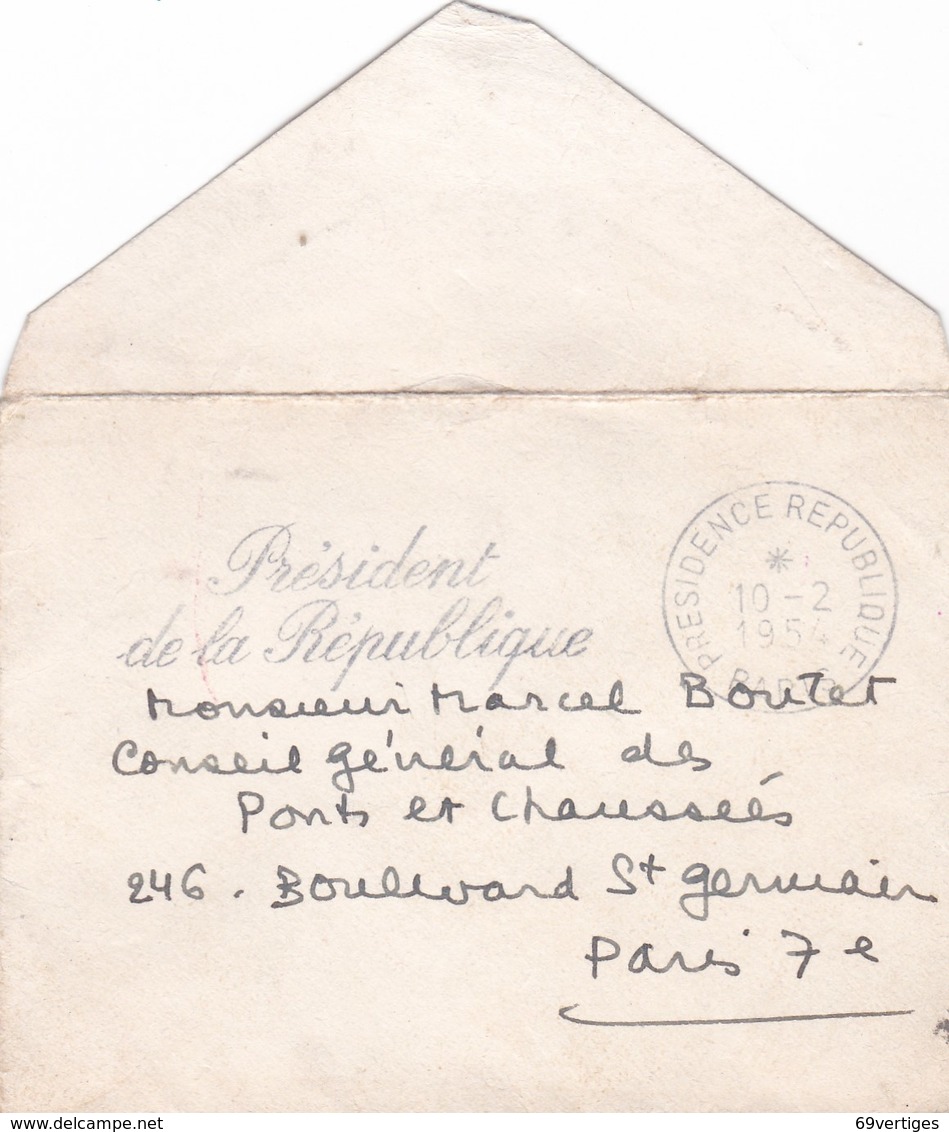 Président
de la République
PRESIDENCE REPUBLIQUE
*
10-2
1954
PARIS
Monsieur Marcel Boutet
Conseil général des
Ponts et Chaussées
246. Boulevard St germain
Paris 7e
delcampe.net
69vertiges